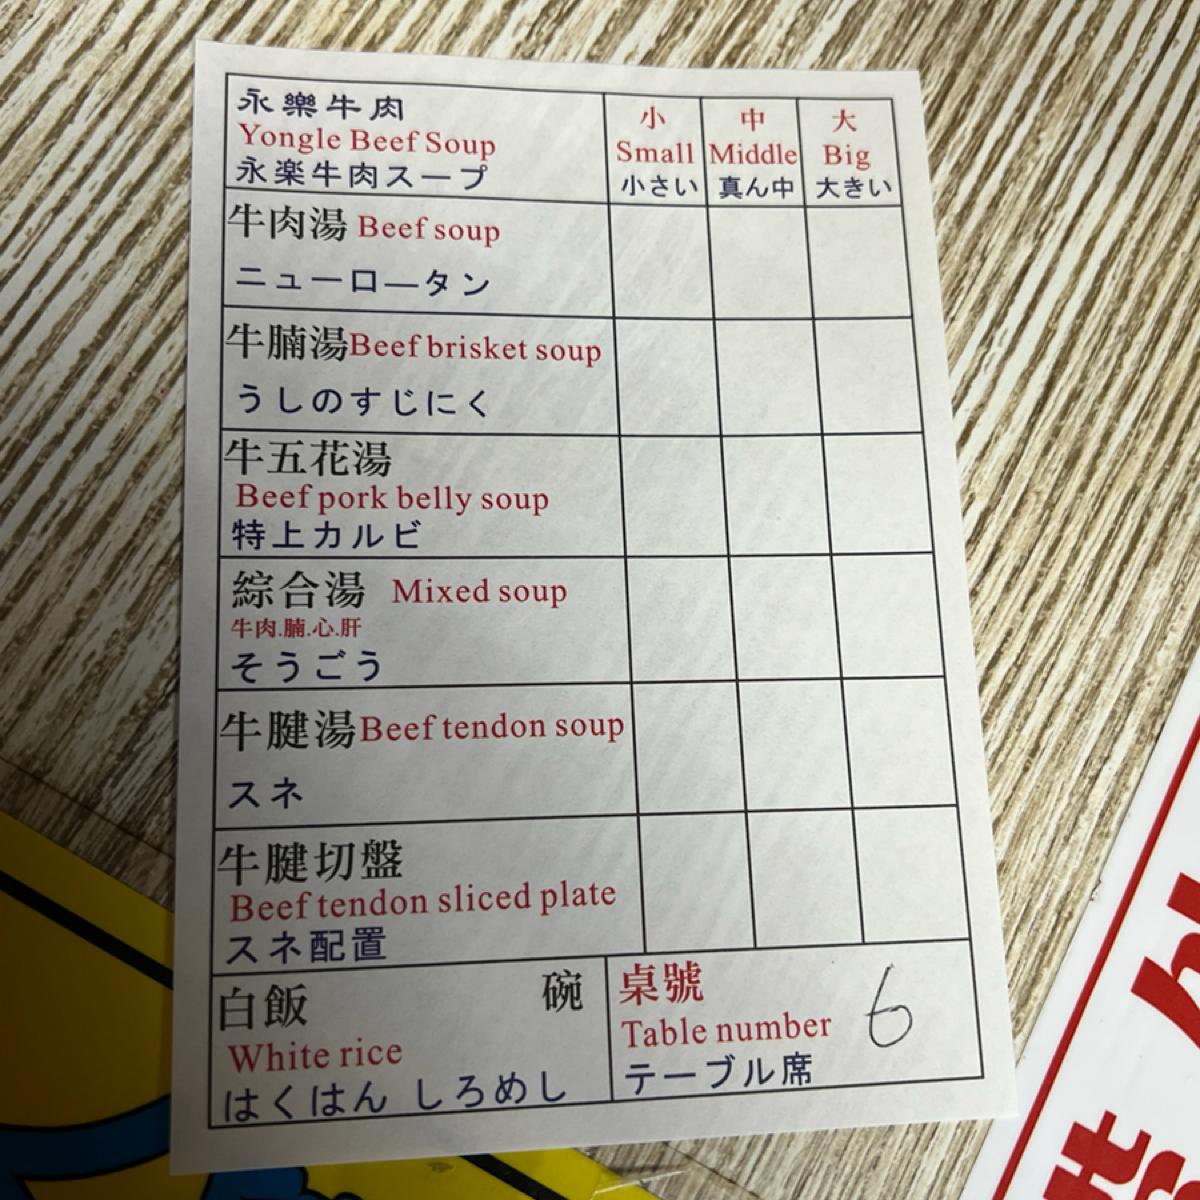 永樂牛肉
Yongle Beef Soup
永楽牛肉スープ
小
Small
小さい
中
Middle
真ん中
大
Big
大きい
牛肉湯 Beef soup
ニューロ―タン
牛腩湯Beef brisket soup
うしのすじにく
牛五花湯
Beef pork belly soup
特上カルビ
綜合湯 Mixed soup
牛肉.腩.心.肝
そうごう
牛腱湯Beef tendon soup
スネ
牛腱切盤
Beef tendon sliced plate
スネ配置
白飯 碗
White rice
はくはん しろめし
桌號
Table number 6
テーブル席